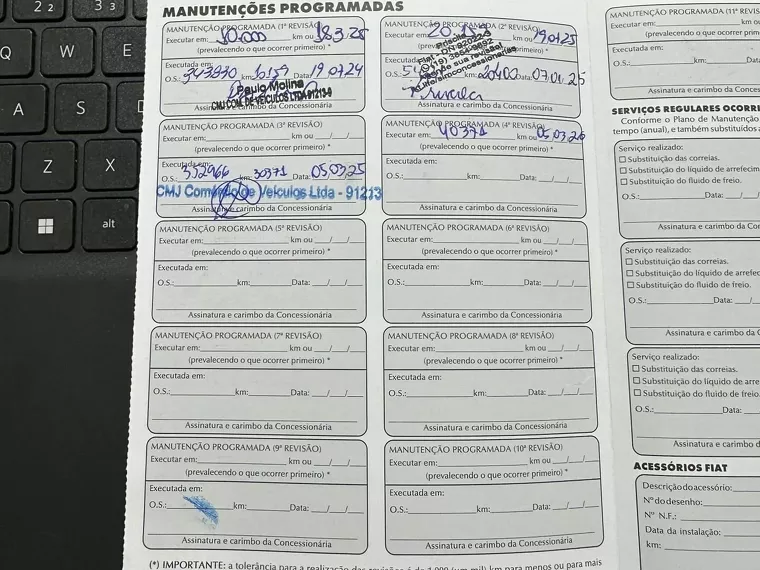 2 2
3 3
Q
W
E
A
S
D
Z
X
alt
MANUTENÇÕES PROGRAMADAS
MANUTENÇÃO PROGRAMADA (1ª REVISÃO)
Executar em: 10.000 km ou 18.3.25
(prevalecendo o que ocorrer primeiro) *
Executada em:
O.S.: 343830 km: 10159 Data: 19.07.24
Paulo Molina
CMJ COM. DE VEICULOS LTDA 91213-9
Assinatura e carimbo da Concessionária
MANUTENÇÃO PROGRAMADA (2ª REVISÃO)
Executar em: km ou 19.07.25
(prevalecendo o que ocorrer primeiro) *
O.S.: km: 20400 07.01.25
MANUTENÇÃO PROGRAMADA (3ª REVISÃO)
Executar em: km ou
(prevalecendo o que ocorrer primeiro) *
Executada em:
O.S.: 352966 km: 30371 Data: 05.03.25
CMJ Comercio de Veiculos Ltda - 91213
Assinatura e carimbo da Concessionária
MANUTENÇÃO PROGRAMADA (4ª REVISÃO)
Executar em: 40371 km ou 05.03.26
(prevalecendo o que ocorrer primeiro) *
Executada em:
O.S.: km: Data:
Assinatura e carimbo da Concessionária
MANUTENÇÃO PROGRAMADA (5ª REVISÃO)
Executar em: km ou
(prevalecendo o que ocorrer primeiro) *
Executada em:
O.S.: km: Data:
Assinatura e carimbo da Concessionária
MANUTENÇÃO PROGRAMADA (6ª REVISÃO)
Executar em: km ou
(prevalecendo o que ocorrer primeiro) *
Executada em:
O.S.: km: Data:
Assinatura e carimbo da Concessionária
MANUTENÇÃO PROGRAMADA (7ª REVISÃO)
Executar em: km ou
(prevalecendo o que ocorrer primeiro) *
Executada em:
O.S.: km: Data:
Assinatura e carimbo da Concessionária
MANUTENÇÃO PROGRAMADA (8ª REVISÃO)
Executar em: km ou
(prevalecendo o que ocorrer primeiro) *
Executada em:
O.S.: km: Data:
Assinatura e carimbo da Concessionária
MANUTENÇÃO PROGRAMADA (9ª REVISÃO)
Executar em: km ou
(prevalecendo o que ocorrer primeiro) *
Executada em:
O.S.: km: Data:
Assinatura e carimbo da Concessionária
MANUTENÇÃO PROGRAMADA (10ª REVISÃO)
Executar em: km ou
(prevalecendo o que ocorrer primeiro) *
Executada em:
O.S.: km: Data:
Assinatura e carimbo da Concessionária
(*) IMPORTANTE: a tolerância para a realização das revisões é de 1.000 (um mil) km para menos ou para mais
MANUTENÇÃO PROGRAMADA (11ª REVIS
Executar em: km ou
(prevalecendo o que ocorrer primei
Executada em:
O.S.: km: Data:
Assinatura e carimbo da Concess
SERVIÇOS REGULARES OCORRI
Conforme o Plano de Manutenção
tempo (anual), e também substituídos a
Serviço realizado:
Substituição das correias.
Substituição do líquido de arrefecim
Substituição do fluido de freio.
O.S.: Data:
Assinatura e carimbo da C
Serviço realizado:
Substituição das correias.
Substituição do líquido de arrefec
Substituição do fluido de freio.
O.S.: Data:
Assinatura e carimbo da C
Serviço realizado:
Substituição das correias.
Substituição do líquido de arre
Substituição do fluido de freio.
O.S.: Data:
Assinatura e carimbo d
ACESSÓRIOS FIAT
Descrição do acessório:
Nº do desenho:
Nº N.F.:
Data da instalação:
km: